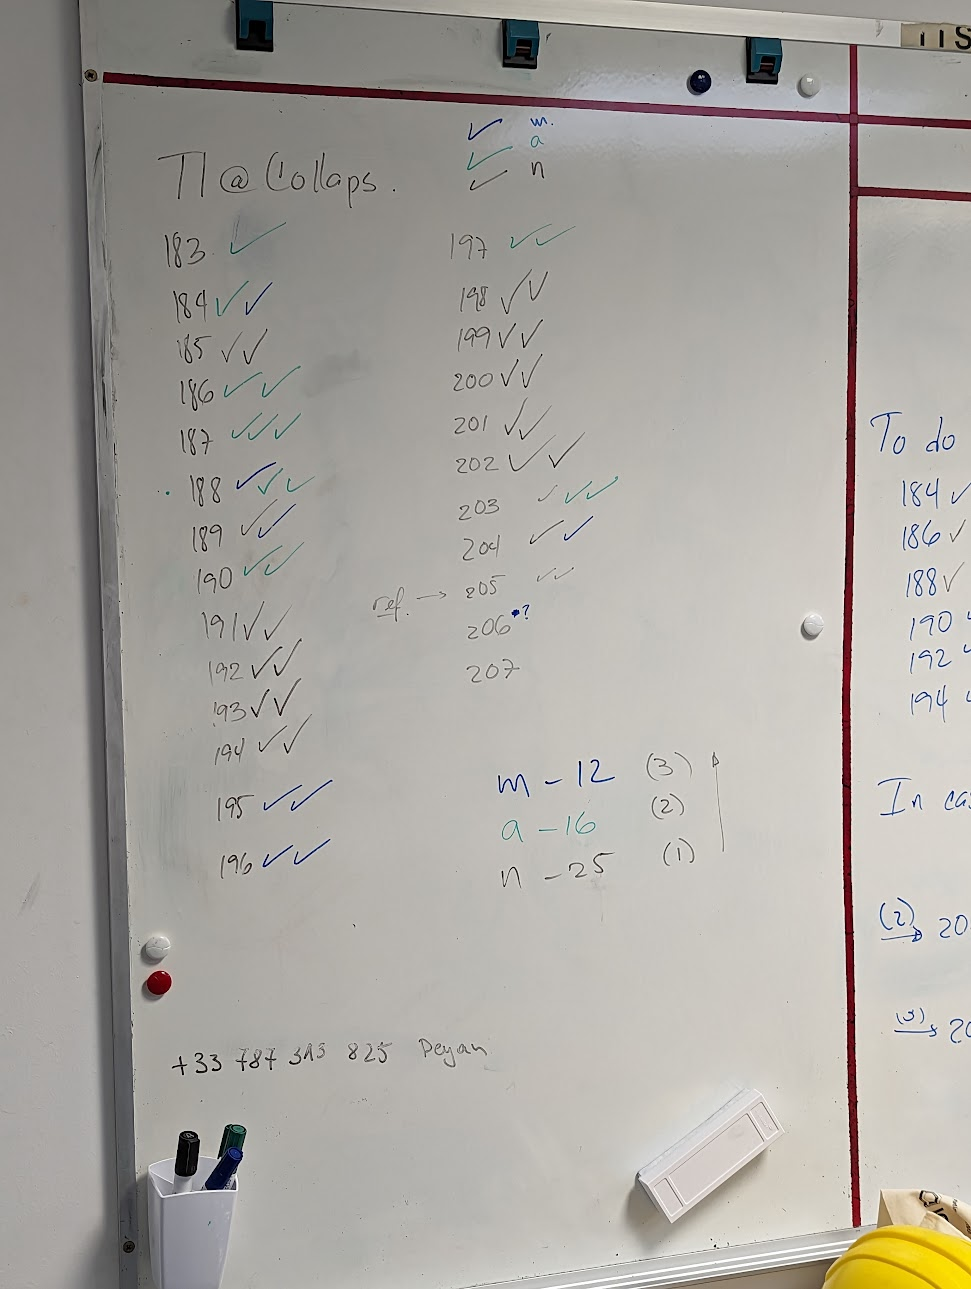 TIS
✓ m.
✓ a
✓ n
TI @ Collaps.
183 ✓
184 ✓✓
185 ✓✓
186 ✓✓
187 ✓✓✓
188 ✓✓✓
189 ✓✓
190 ✓✓
191 ✓✓
192 ✓✓
193 ✓✓
194 ✓✓
195 ✓✓
196 ✓✓
197 ✓✓
198 ✓✓
199 ✓✓
200 ✓✓
201 ✓✓
202 ✓✓
203 ✓✓✓
204 ✓✓
ref. → 205 ✓✓
206 •?
207
m - 12 (3)
a - 16 (2)
n - 25 (1)
+33 787 313 825 Deyan
To do
184 ✓
186 ✓
188 ✓
190
192
194
In cas
(2) → 20
(3) → 20